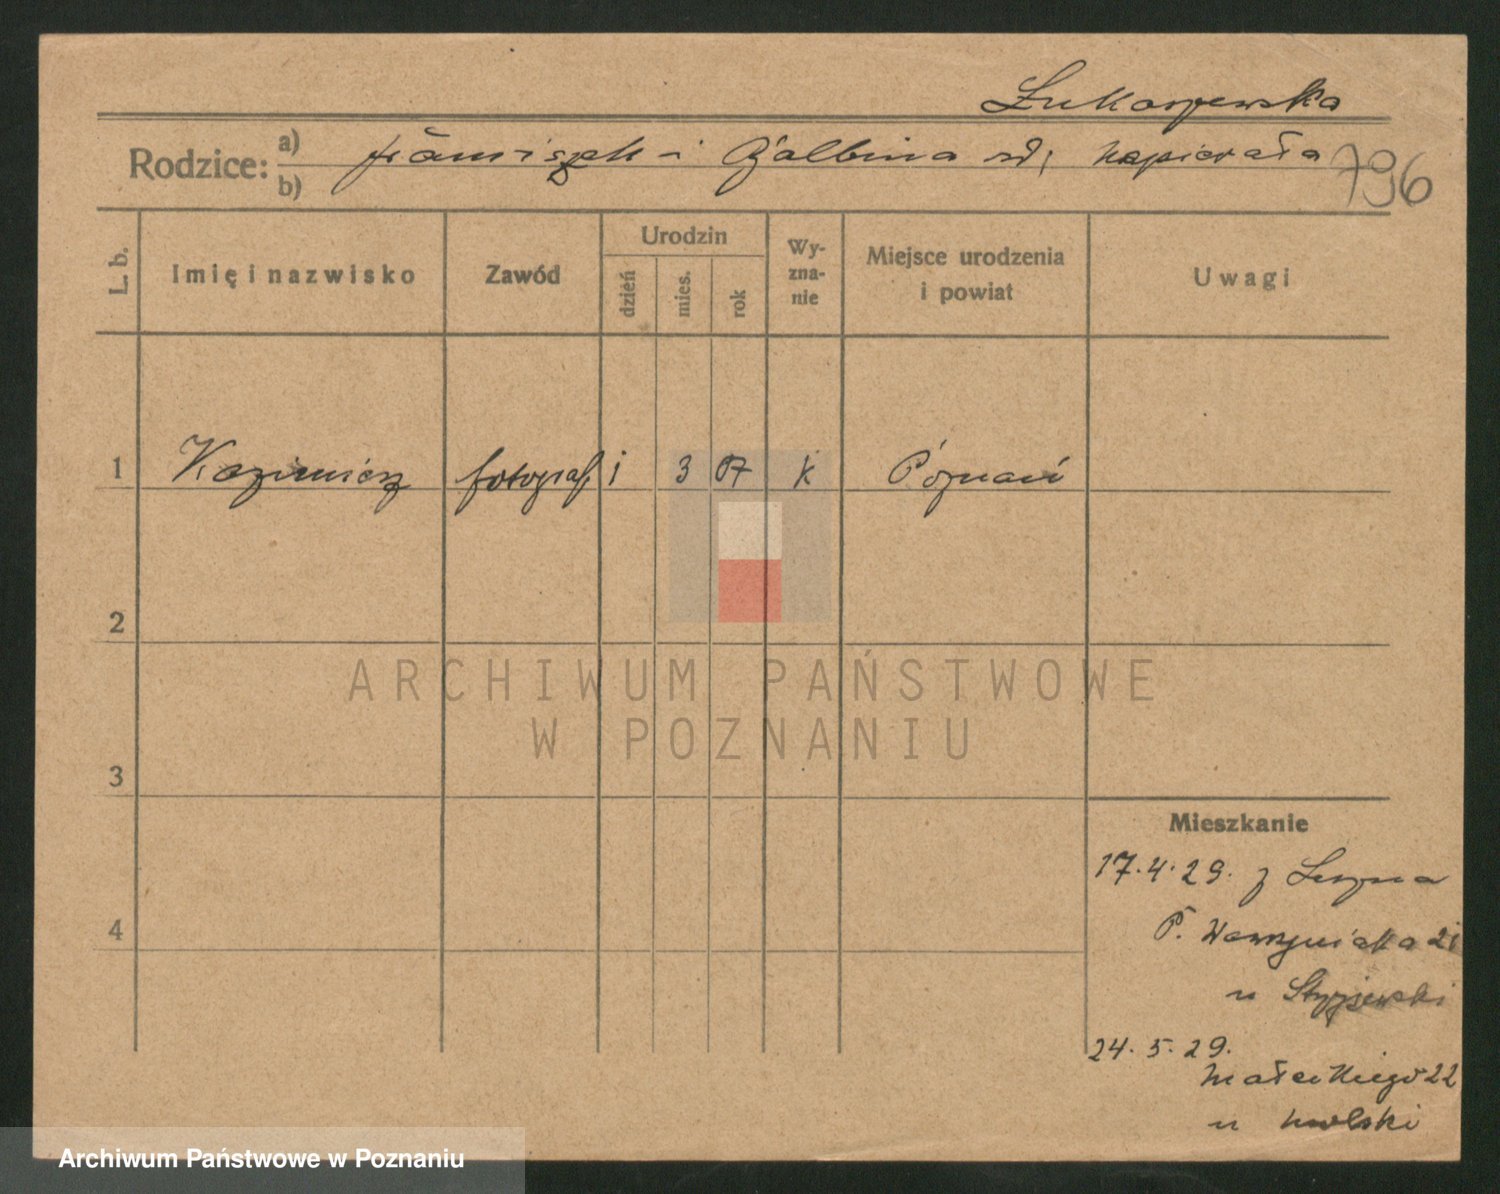 Łukaszewska
Rodzice: a) b) Franciszek i Balbina zd. Napierała 796
L. b. Imię i nazwisko Zawód Urodzin dzień mies. rok Wy-zna-nie Miejsce urodzenia i powiat Uwagi
1 Kazimierz fotograf 1 3 07 k Poznań
2
ARCHIWUM PAŃSTWOWE
W POZNANIU
3
Mieszkanie
17.4.29. z Leszna
4
P. Wawrzyniaka 21
u
24.5.29.
Małeckiego 22
u Wolski
Archiwum Państwowe w Poznaniu